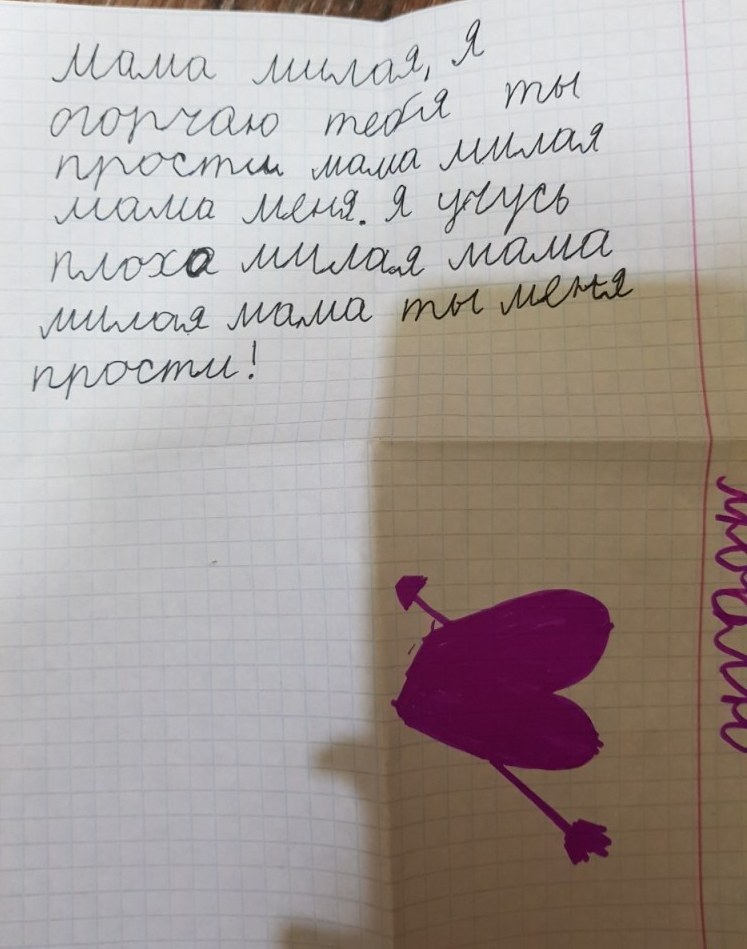 Мама милая, я
огорчаю тебя ты
прости мама милая
мама меня. Я учусь
плоха милая мама
милая мама ты меня
прости!